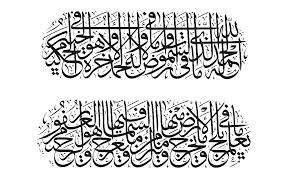 الحمد لله الذي له ما في السموات وما في الأرض وله الحمد في الآخرة وهو الحكيم الخبير
يعلم ما يلج في الأرض وما يخرج منها وما ينزل من السماء وما يعرج فيها وهو الرحيم الغفور